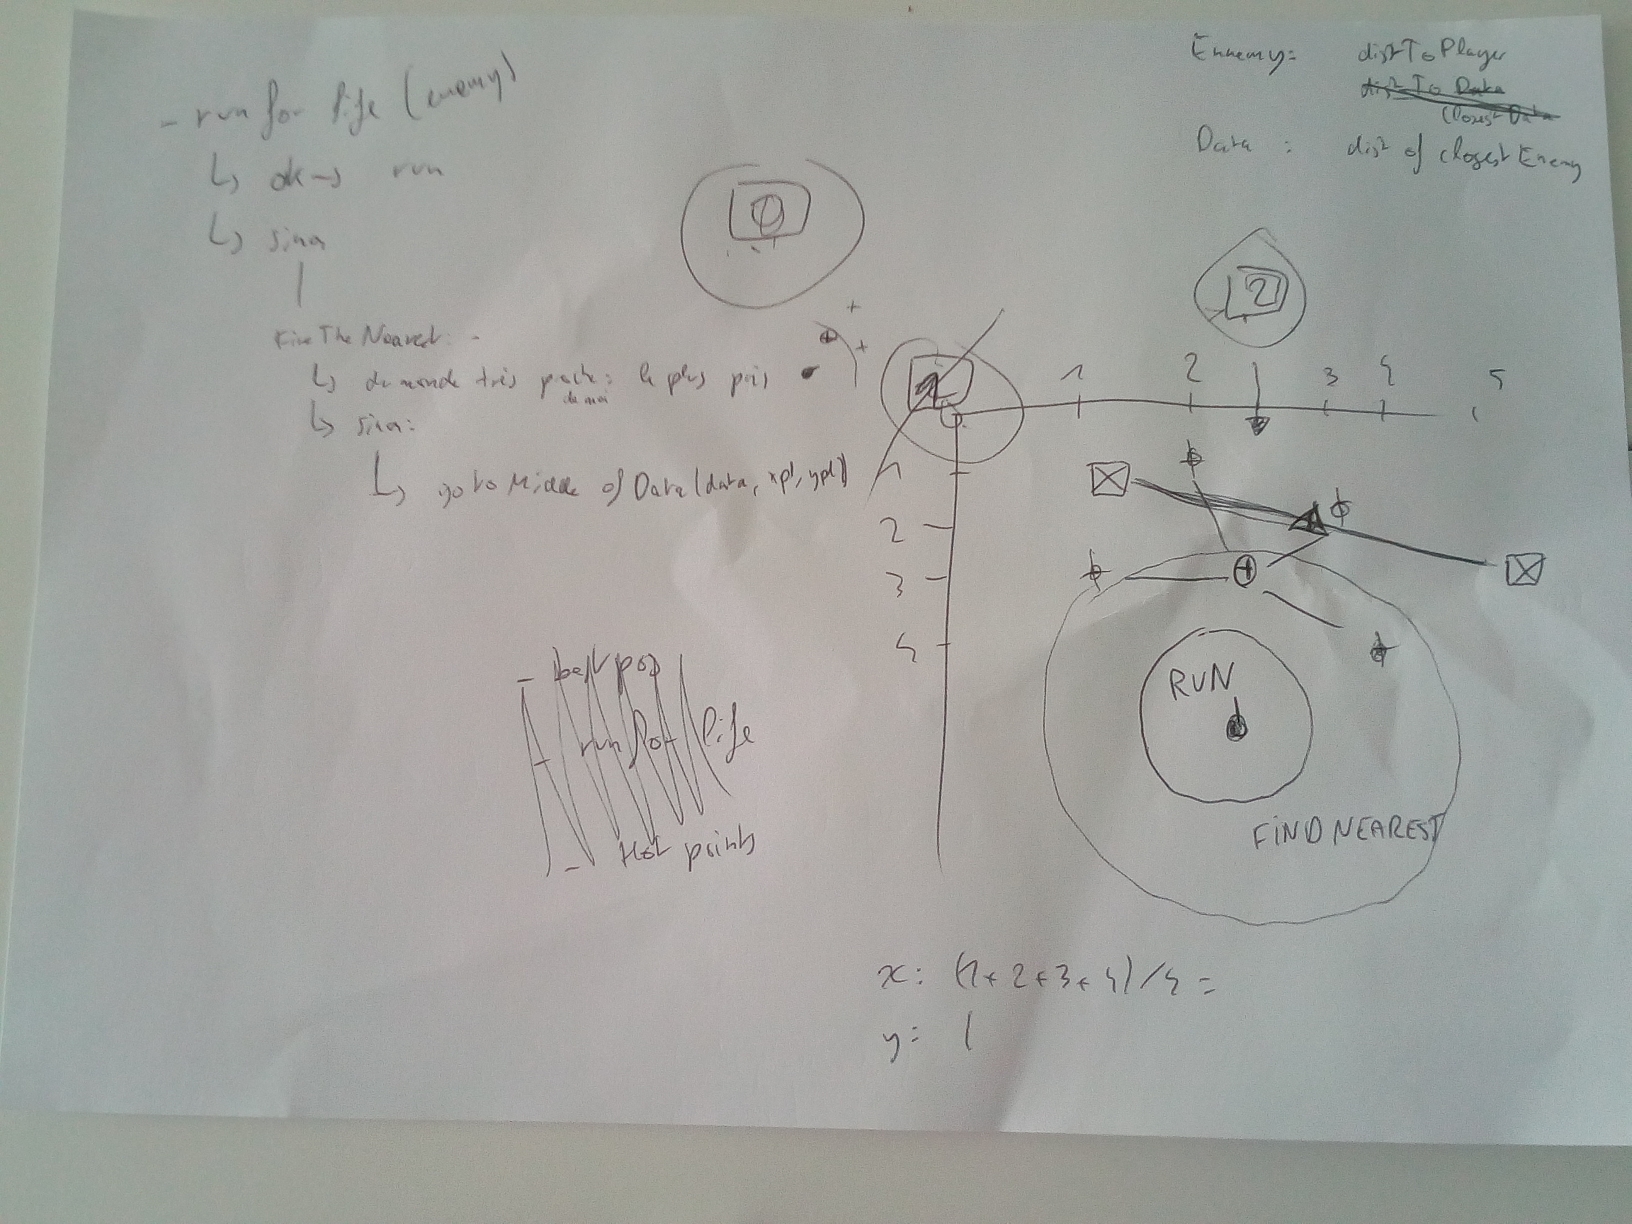 Ennemy: distToPlayer
dist To Data
Closest Data
Data : dist of closest Enemy
- run for life (enemy)
↳ ok → run
↳ sinon
Find The Nearest: -
↳ demande très proche: le plus près
de moi
↳ sinon:
↳ go to Middle of Data (data, xpl, ypl)
0
2
1
1 2 3 4 5
1
2
3
4
- best pos
- run for life
- Hot points
RUN
FIND NEAREST
x: (1+2+3+4)/4 =
y: (